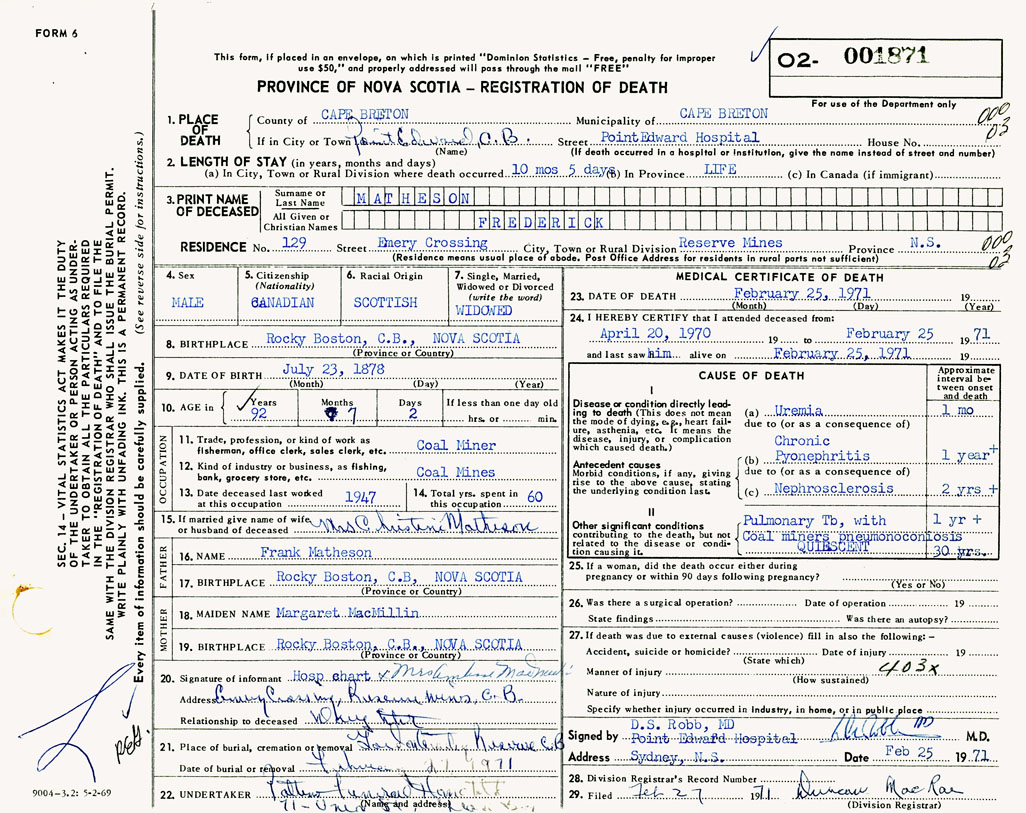 FORM 6
This form, if placed in an envelope, on which is printed "Dominion Statistics – Free, penalty for improper
use $50," and properly addressed will pass through the mail "FREE"
O2- 001871
PROVINCE OF NOVA SCOTIA – REGISTRATION OF DEATH
For use of the Department only
1. PLACE OF DEATH
County of CAPE BRETON Municipality of CAPE BRETON
000
03
If in City or Town Point Edward, C.B. Street PointEdward Hospital House No.
(Name) (If death occurred in a hospital or institution, give the name instead of street and number)
2. LENGTH OF STAY (in years, months and days)
(a) In City, Town or Rural Division where death occurred 10 mos 5 days (b) In Province LIFE (c) In Canada (if immigrant)
3. PRINT NAME OF DECEASED
Surname or Last Name MATHESON
All Given or Christian Names FREDERICK
RESIDENCE No. 129 Street Emery Crossing City, Town or Rural Division Reserve Mines Province N.S.
000
03
(Residence means usual place of abode. Post Office Address for residents in rural ports not sufficient)
4. Sex
MALE
5. Citizenship
(Nationality)
CANADIAN
6. Racial Origin
SCOTTISH
7. Single, Married,
Widowed or Divorced
(write the word)
WIDOWED
8. BIRTHPLACE Rocky Boston, C.B., NOVA SCOTIA
(Province or Country)
9. DATE OF BIRTH July 23, 1878
(Month) (Day) (Year)
10. AGE in Years Months Days If less than one day old
92 7 2 hrs. or min.
OCCUPATION
11. Trade, profession, or kind of work as
fisherman, office clerk, sales clerk, etc. Coal Miner
12. Kind of industry or business, as fishing,
bank, grocery store, etc. Coal Mines
13. Date deceased last worked
at this occupation 1947
14. Total yrs. spent in
this occupation 60
15. If married give name of wife
or husband of deceased Mrs Christine Matheson
FATHER
16. NAME Frank Matheson
17. BIRTHPLACE Rocky Boston, C.B, NOVA SCOTIA
(Province or Country)
MOTHER
18. MAIDEN NAME Margaret MacMillin
19. BIRTHPLACE Rocky Boston, C.B., NOVA SCOTIA
(Province or Country)
20. Signature of informant Hosp chart x Mrs
Address Emery Crossing, Reserve Mines, C.B.
Relationship to deceased
21. Place of burial, cremation or removal Reserve C.B
Date of burial or removal February 27 1971
22. UNDERTAKER
(Name and address)
MEDICAL CERTIFICATE OF DEATH
23. DATE OF DEATH February 25, 1971 19
(Month) (Day) (Year)
24. I HEREBY CERTIFY that I attended deceased from:
April 20, 1970 19 to February 25 1971
and last saw him alive on February 25, 1971 19
CAUSE OF DEATH
Approximate
interval be-
tween onset
and death
I
Disease or condition directly lead-
ing to death (This does not mean
the mode of dying, e.g., heart fail-
ure, asthenia, etc. It means the
disease, injury, or complication
which caused death.)
(a) Uremia 1 mo
due to (or as a consequence of)
Antecedent causes
Morbid conditions, if any, giving
rise to the above cause, stating
the underlying condition last.
Chronic
(b) Pyonephritis 1 year+
due to (or as a consequence of)
(c) Nephrosclerosis 2 yrs +
II
Other significant conditions
contributing to the death, but not
related to the disease or condi-
tion causing it.
Pulmonary Tb, with 1 yr +
Coal miners pneumonoconiosis
QUIESCENT 30 yrs.
25. If a woman, did the death occur either during
pregnancy or within 90 days following pregnancy?
(Yes or No)
26. Was there a surgical operation? Date of operation 19
State findings Was there an autopsy?
27. If death was due to external causes (violence) fill in also the following: –
Accident, suicide or homicide? Date of injury 19
(State which)
Manner of injury 403x
(How sustained)
Nature of injury
Specify whether injury occurred in industry, in home, or in public place
D.S. Robb, MD
Signed by Point Edward Hospital M.D.
Address Sydney, N.S. Date Feb 25 1971
28. Division Registrar's Record Number
29. Filed Feb 27 1971 Duncan MacRae
(Division Registrar)
SEC. 14 – VITAL STATISTICS ACT MAKES IT THE DUTY
OF THE UNDERTAKER OR PERSON ACTING AS UNDER-
TAKER TO OBTAIN ALL THE PARTICULARS REQUIRED
IN THE "REGISTRATION OF DEATH" AND TO FILE THE
SAME WITH THE DIVISION REGISTRAR WHO SHALL ISSUE THE BURIAL PERMIT.
WRITE PLAINLY WITH UNFADING INK. THIS IS A PERMANENT RECORD.
Every item of information should be carefully supplied. (See reverse side for instructions.)
REG.
9004-3.2: 5-2-69